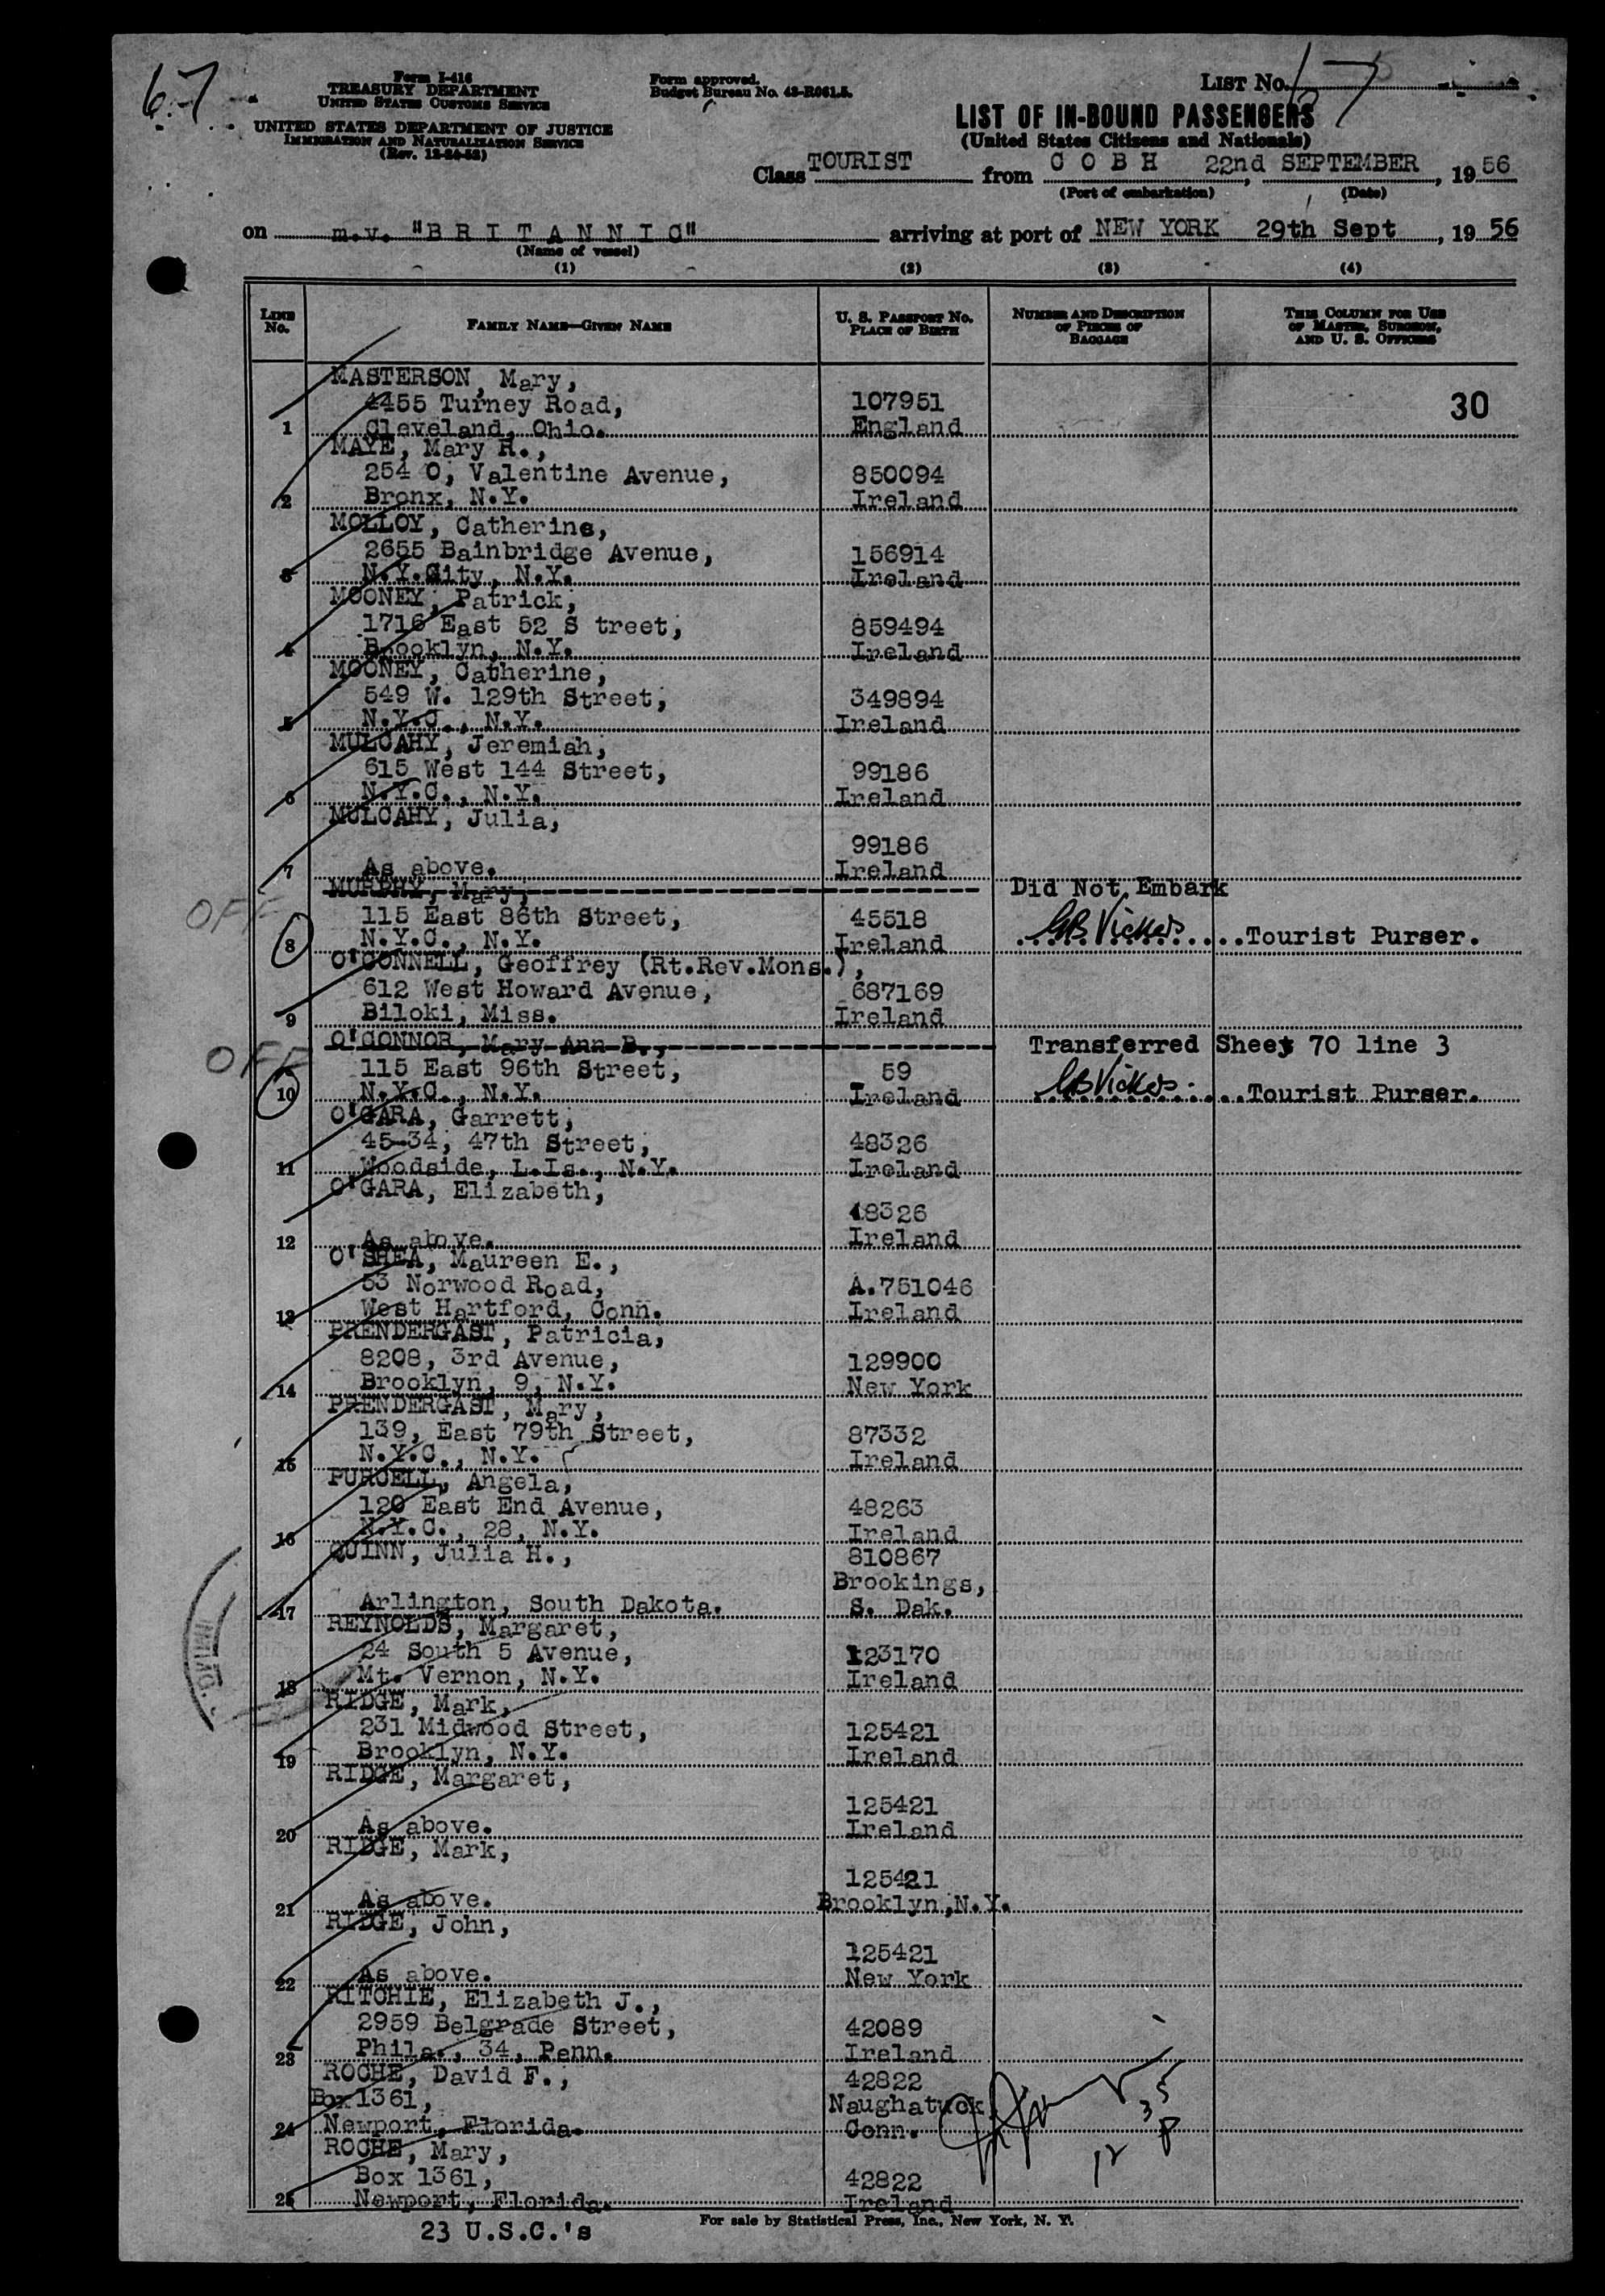 67
Form I-416
TREASURY DEPARTMENT
UNITED STATES CUSTOMS SERVICE
UNITED STATES DEPARTMENT OF JUSTICE
IMMIGRATION AND NATURALIZATION SERVICE
(Rev. 12-24-52)
Form approved.
Budget Bureau No. 43-R061.5.
LIST No. 67
LIST OF IN-BOUND PASSENGERS
(United States Citizens and Nationals)
Class TOURIST from C O B H 22nd SEPTEMBER, 1956
(Port of embarkation) (Date)
on m.v. "B R I T A N N I C" arriving at port of NEW YORK 29th Sept, 1956
(Name of vessel)
(1) (2) (3) (4)
LINE No.
FAMILY NAME—GIVEN NAME
U. S. PASSPORT NO.
PLACE OF BIRTH
NUMBER AND DESCRIPTION
OF PIECES OF
BAGGAGE
THIS COLUMN FOR USE
OF MASTER, SURGEON,
AND U. S. OFFICERS
MASTERSON, Mary,
4455 Turney Road, 107951 30
1 Cleveland, Ohio. England
MAYE, Mary R.,
254 0, Valentine Avenue, 850094
2 Bronx, N.Y. Ireland
MOLLOY, Catherine,
2655 Bainbridge Avenue, 156914
3 N.Y.City, N.Y. Ireland
MOONEY, Patrick,
1716 East 52 S treet, 859494
4 Brooklyn, N.Y. Ireland
MOONEY, Catherine,
549 W. 129th Street, 349894
5 N.Y.C., N.Y. Ireland
MULCAHY, Jeremiah,
615 West 144 Street, 99186
6 N.Y.C., N.Y. Ireland
MULCAHY, Julia,
99186
7 As above. Ireland
MURPHY, Mary, Did Not Embark
OFF 115 East 86th Street, 45518
8 N.Y.C., N.Y. Ireland GB Vickers Tourist Purser.
O'CONNELL, Geoffrey (Rt.Rev.Mons.),
612 West Howard Avenue, 687169
9 Biloki, Miss. Ireland
OFF O'CONNOR, Mary Ann B., Transferred Sheet 70 line 3
115 East 96th Street, 59
10 N.Y.C., N.Y. Ireland GB Vickers Tourist Purser.
O'GARA, Garrett,
45-34, 47th Street, 48326
11 Woodside, L.Is., N.Y. Ireland
O'GARA, Elizabeth,
48326
12 As above. Ireland
O'SHEA, Maureen E.,
53 Norwood Road, A.751046
13 West Hartford, Conn. Ireland
PRENDERGAST, Patricia,
8208, 3rd Avenue, 129900
14 Brooklyn, 9, N.Y. New York
PRENDERGAST, Mary,
139, East 79th Street, 87332
15 N.Y.C., N.Y. Ireland
PURCELL, Angela,
120 East End Avenue, 48263
16 N.Y.C., 28, N.Y. Ireland
QUINN, Julia H., 810867
Brookings,
17 Arlington, South Dakota. S. Dak.
REYNOLDS, Margaret,
24 South 5 Avenue, 123170
18 Mt. Vernon, N.Y. Ireland
RIDGE, Mark,
231 Midwood Street, 125421
19 Brooklyn, N.Y. Ireland
RIDGE, Margaret,
125421
20 As above. Ireland
RIDGE, Mark,
125421
21 As above. Brooklyn,N.Y.
RIDGE, John,
125421
22 As above. New York
RITCHIE, Elizabeth J.,
2959 Belgrade Street, 42089
23 Phila., 34, Penn. Ireland
ROCHE, David F., 42822
Box 1361, Naughatuck,
24 Newport, Florida. Conn.
ROCHE, Mary,
Box 1361, 42822
25 Newport, Florida. Ireland
23 U.S.C.'s
For sale by Statistical Press, Inc., New York, N. Y.